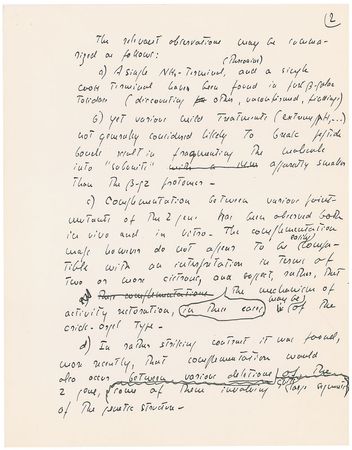 2
The relevant observations may be summa-
rized as follows:
(Threonine)
a) A single NH₂-Terminal, and a single
COOH Terminal have been found in pure β-galac
tosidase (discounting other, unconfirmed, findings)
b) yet various mild treatments (extreme pH,...)
not generally considered likely to break peptide
bonds result in fragmenting the molecule
into "subunits" apparently smaller
than the β-gz protomer -
c) Complementation between various point-
mutants of the Z gene has been observed both
in vivo and in vitro - The complementation
maps however do not appear to be easily compa-
tible with an interpretation in terms of
two or more cistrons, and suggest, rather, that
This complementation the mechanism of
activity restoration, in these cases may be of the
Crick-Orgel Type -
d) In rather striking contrast it was found,
more recently, that complementation would
also occur between various deletions of the
Z gene, some of them involving large segments
of the genetic structure -